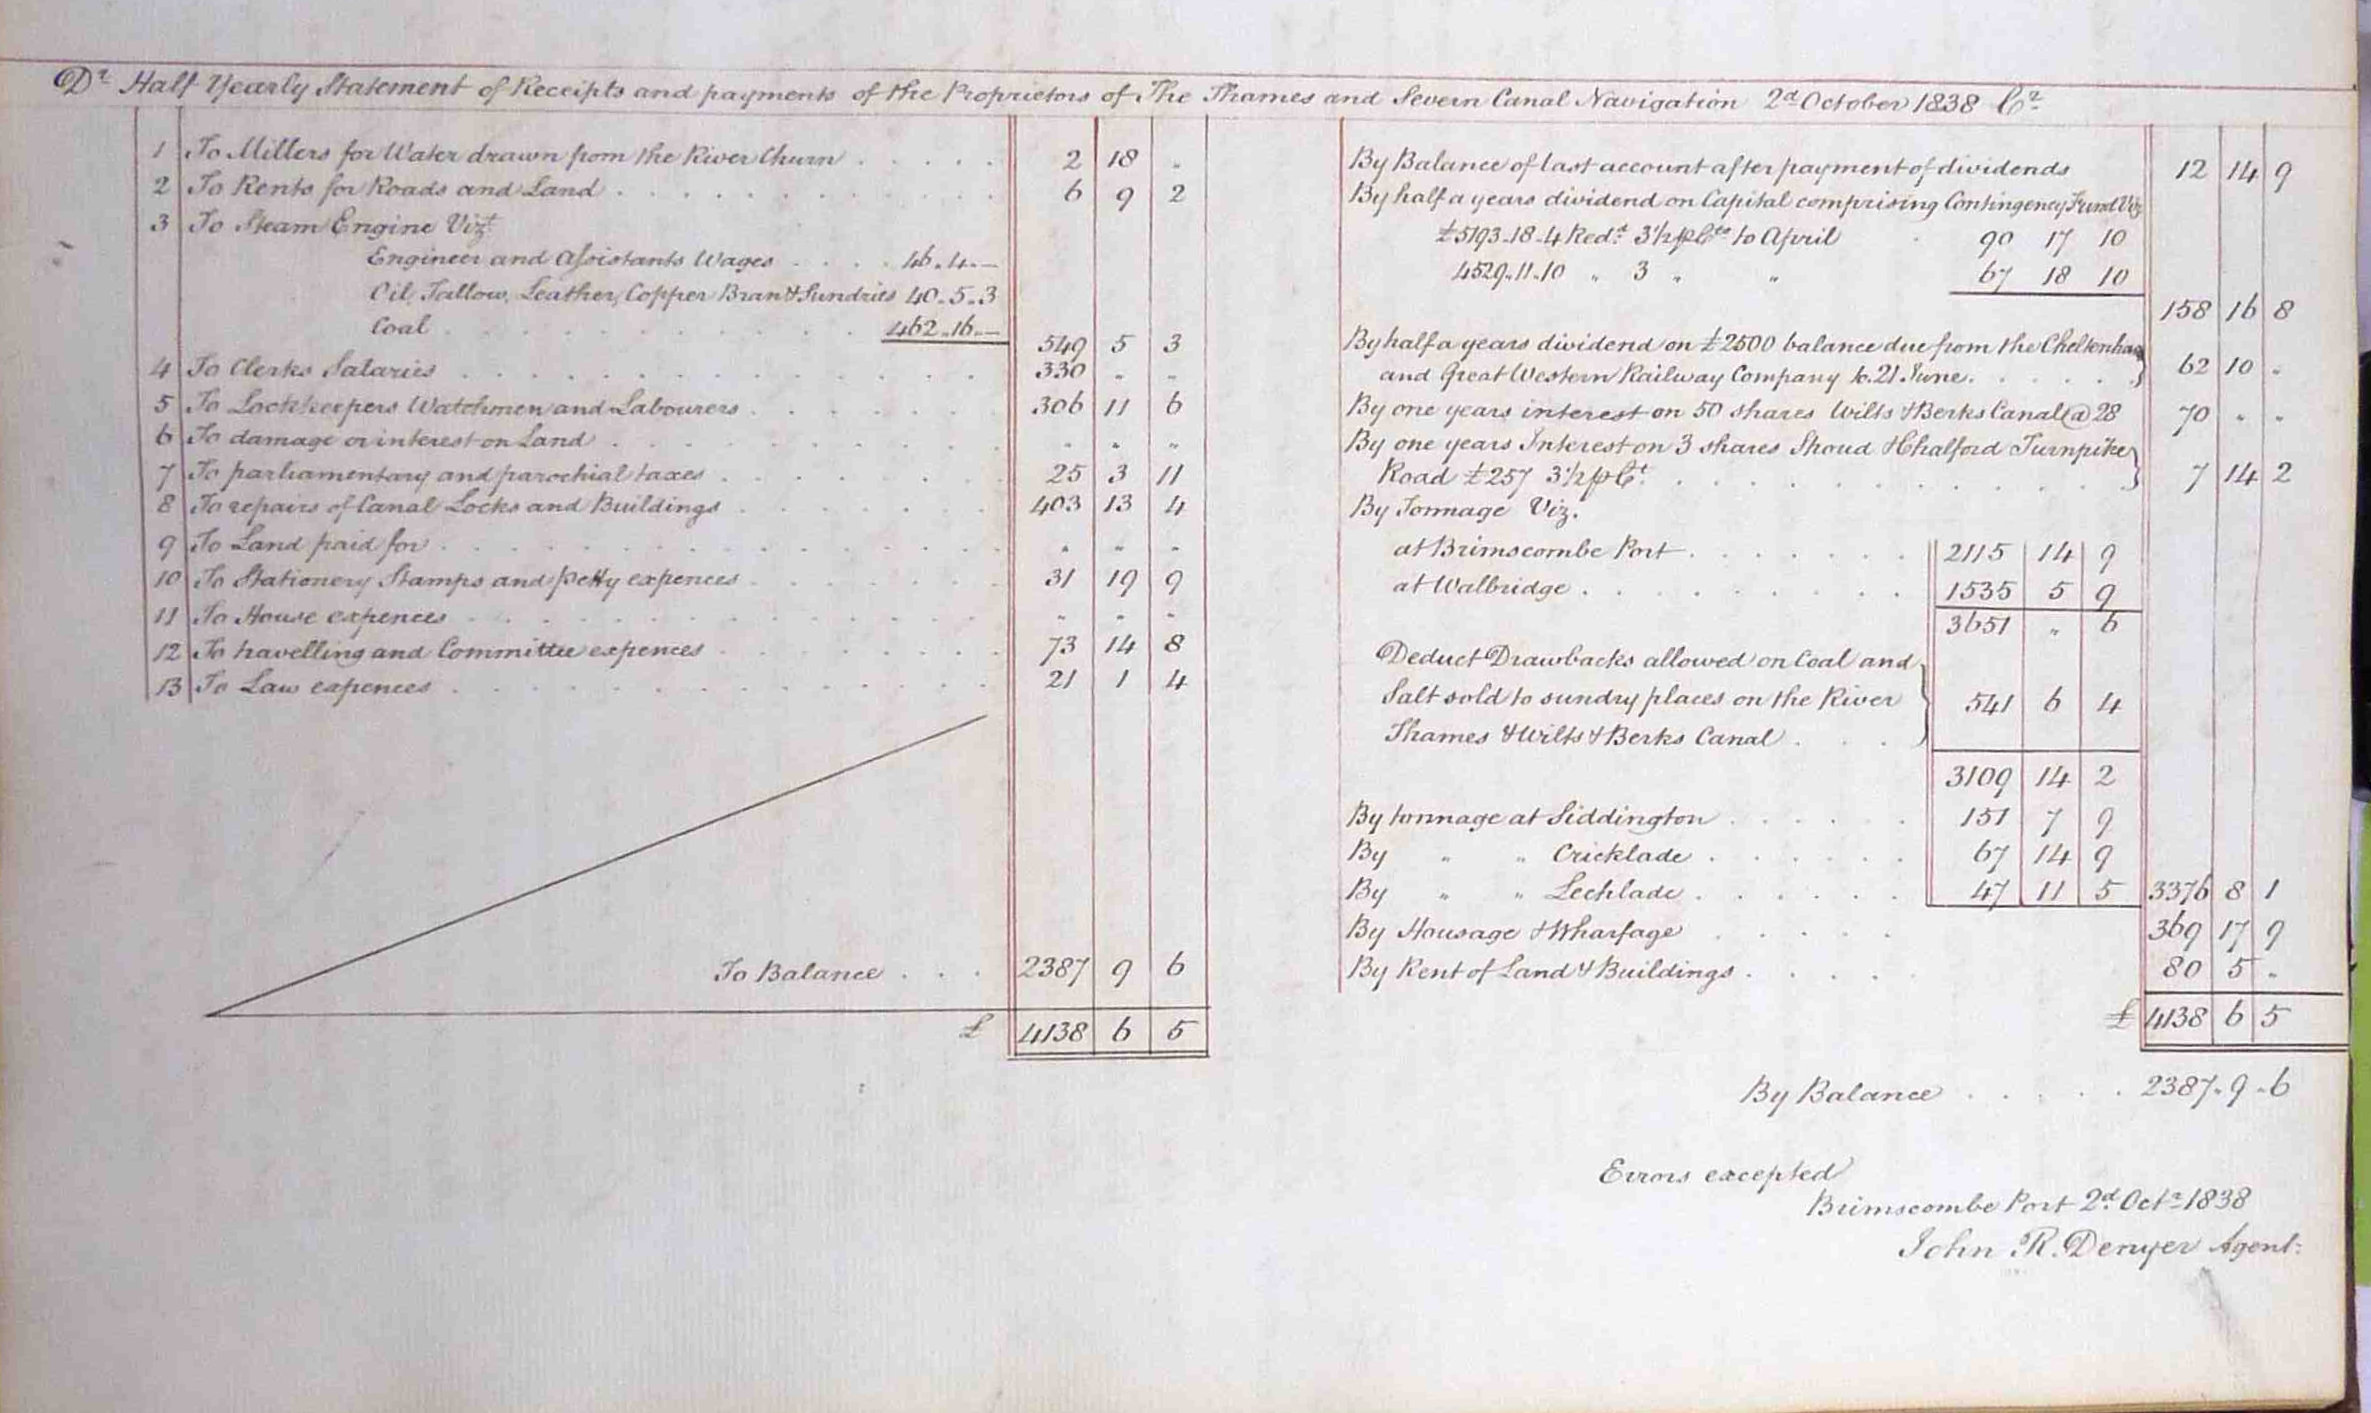 Dr Half Yearly Statement of Receipts and payments of the Proprietors of The Thames and Severn Canal Navigation 2d October 1838 Cr
1 To Millers for Water drawn from the River Churn . . . . . 2 18 "
2 To Rents for Roads and Land . . . . . 6 9 2
3 To Steam Engine Vizt
Engineer and Assistants Wages . . . . 46..4..—
Oil, Tallow, Leather, Copper Bran & Sundries 40..5..3
Coal . . . . . 462..16..—
549 5 3
4 To Clerks Salaries . . . . . 330 " "
5 To Lockkeepers Watchmen and Labourers . . . . . 306 11 6
6 To damage or interest on Land . . . . . " " "
7 To parliamentary and parochial taxes . . . . . 25 3 11
8 To repairs of Canal Locks and Buildings . . . . . 403 13 4
9 To Land paid for . . . . . " " "
10 To Stationery Stamps and petty expences . . . . . 31 19 9
11 To House expences . . . . . " " "
12 To travelling and Committee expences . . . . . 73 14 8
13 To Law expences . . . . . 21 1 4
To Balance . . . 2387 9 6
£ 4138 6 5
By Balance of last account after payment of dividends 12 14 9
By half a years dividend on Capital comprising Contingency Fund Viz
£5193..18..4 Redd 3½ p Cts to April 90 17 10
4529..11..10 " 3 " " 67 18 10
158 16 8
By half a years dividend on £2500 balance due from the Cheltenham
and Great Western Railway Company to 21 June. . . . . 62 10 "
By one years interest on 50 shares Wilts & Berks Canal @ 28 70 " "
By one years Interest on 3 shares Stroud & Chalford Turnpike
Road £257 3½ p Ct . . . . . 7 14 2
By Tonnage Viz.
at Brimscombe Port . . . . . 2115 14 9
at Walbridge . . . . . 1535 5 9
3651 " 6
Deduct Drawbacks allowed on Coal and
Salt sold to sundry places on the River 541 6 4
Thames & Wilts & Berks Canal . . .
3109 14 2
By tonnage at Siddington . . . . . 151 7 9
By " " Cricklade . . . . . 67 14 9
By " " Lechlade . . . . . 47 11 5 3376 8 1
By Housage & Wharfage . . . . . 369 17 9
By Rent of Land & Buildings . . . . . 80 5 "
£ 4138 6 5
By Balance . . . . . 2387..9..6
Errors excepted
Brimscombe Port 2d. Octr 1838
John R. Denyer Agent